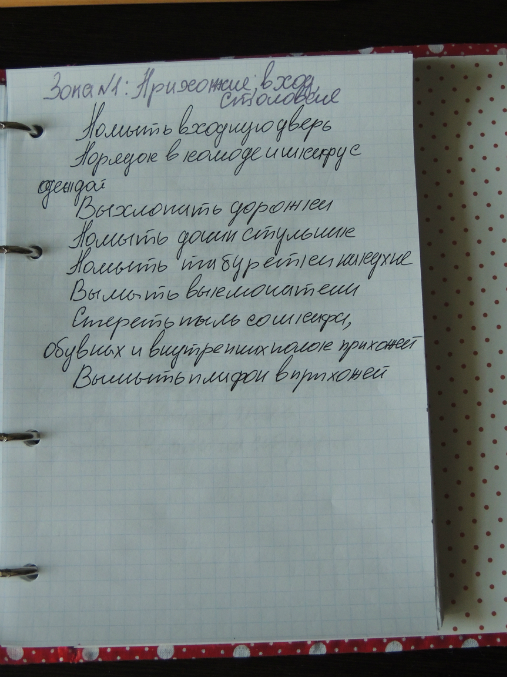 Зона №1: Прихожие, вход,
столовые
Помыть входную дверь
Порядок в комоде и шкафу с
одеждой
Выхлопать дорожки
Помыть дома стульчик
Помыть табуретки на кухне
Вымыть выключатели
Стереть пыль со шкафа,
обувных и внутренних полок прихожей
Вымыть плафон в прихожей